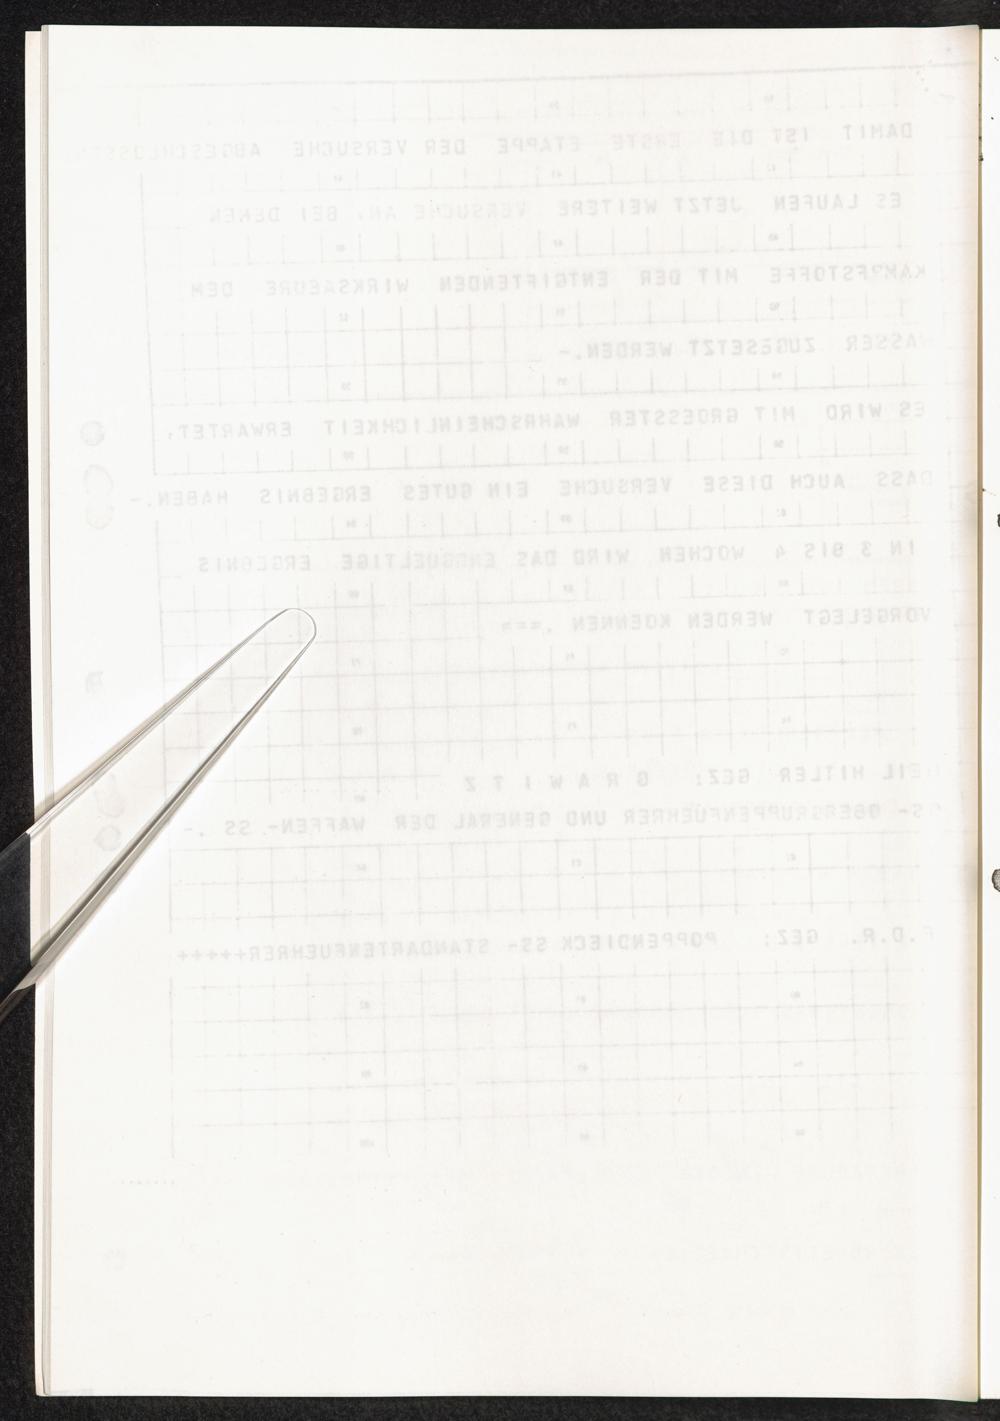 DAMIT IST DIE ERSTE ETAPPE DER VERSUCHE ABGESCHLOSSEN
ES LAUFEN JETZT WEITERE VERSUCHE AN, BEI DENEN
KAMPFSTOFFE MIT DER ENTGIFTENDEN WIRKSAEURE DEM
WASSER ZUGESETZT WERDEN.-
ES WIRD MIT GROESSTER WAHRSCHEINLICHKEIT ERWARTET,
DASS AUCH DIESE VERSUCHE EIN GUTES ERGEBNIS HABEN.-
IN 3 BIS 4 WOCHEN WIRD DAS ENDGUELTIGE ERGEBNIS
VORGELEGT WERDEN KOENNEN .===
HEIL HITLER GEZ: G R A W I T Z
SS- OBERGRUPPENFUEHRER UND GENERAL DER WAFFEN- SS .-
F.D.R. GEZ: POPPENDIECK SS- STANDARTENFUEHRER+++++